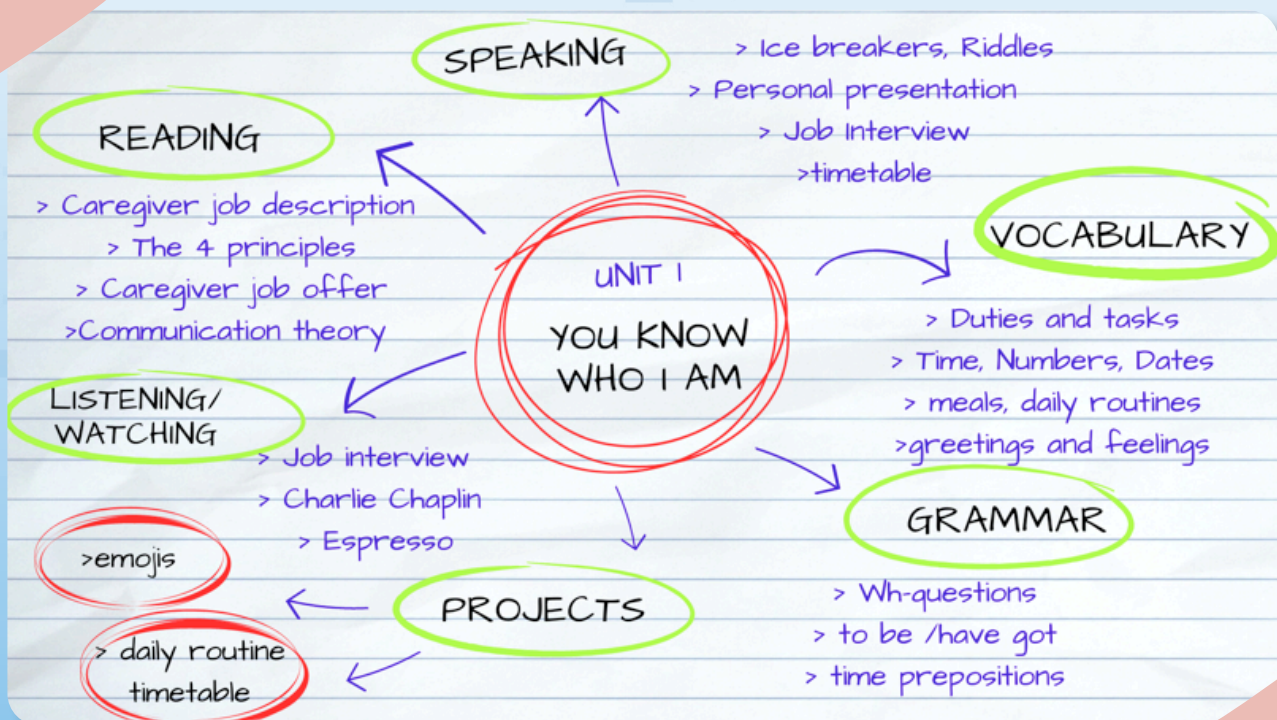 SPEAKING
> Ice breakers, Riddles
> Personal presentation
> Job Interview
>timetable
READING
> Caregiver job description
> The 4 principles
> Caregiver job offer
>Communication theory
UNIT 1
YOU KNOW
WHO I AM
VOCABULARY
> Duties and tasks
> Time, Numbers, Dates
> meals, daily routines
>greetings and feelings
LISTENING/
WATCHING
> Job interview
> Charlie Chaplin
> Espresso
GRAMMAR
> Wh-questions
> to be /have got
> time prepositions
PROJECTS
>emojis
> daily routine
timetable